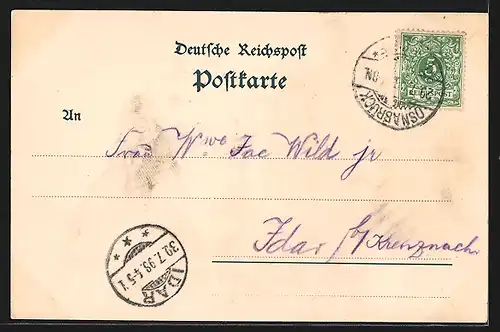 Deutsche Reichspost
Postkarte
An
Frau Wwe Jac Wild jr
Idar b/ Kreuznach
OSNABRÜCK
IDAR
30.7.98.4-5N